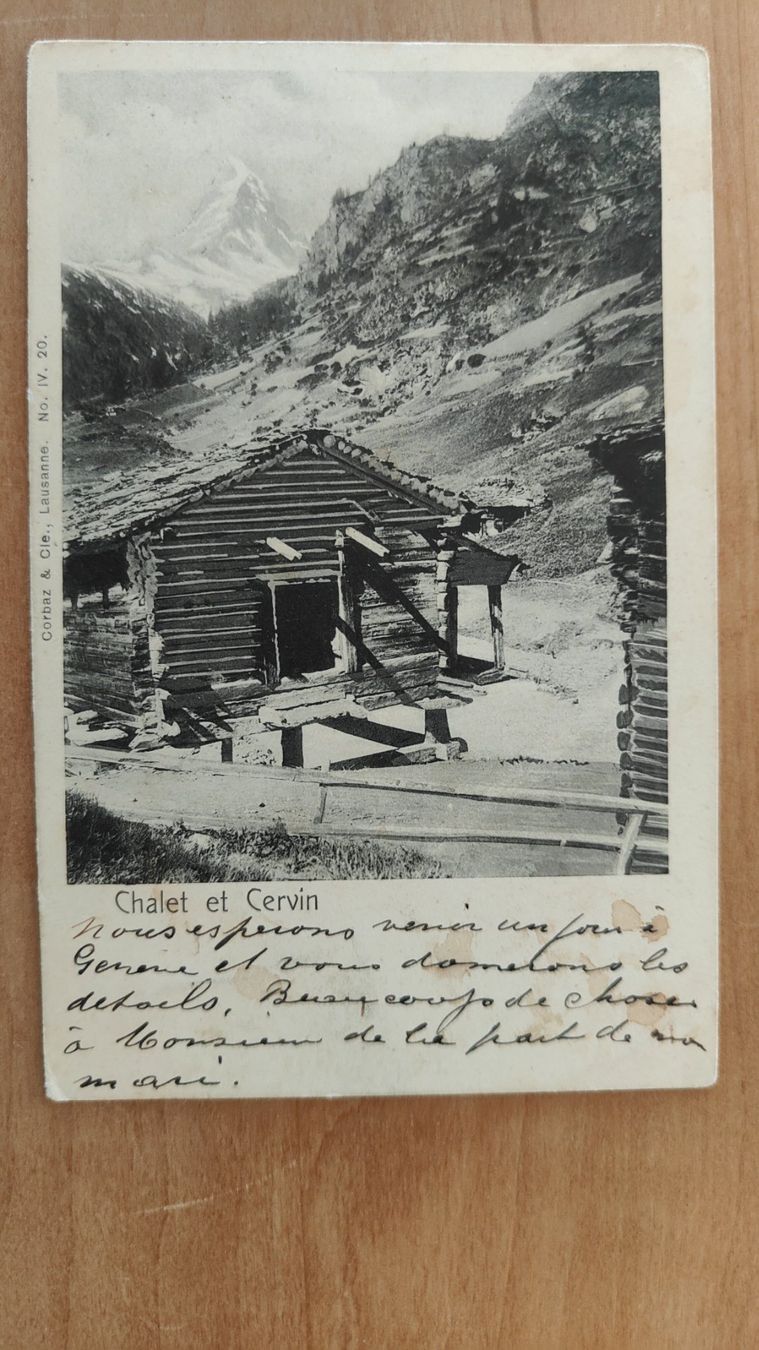 Corbaz & Cie., Lausanne. No. IV. 20.
Chalet et Cervin
Nous esperons venir un jour à
Geneve et vous donnerons les
details, Beaucoups de choses
à Monsieur de la part de mon
mari.